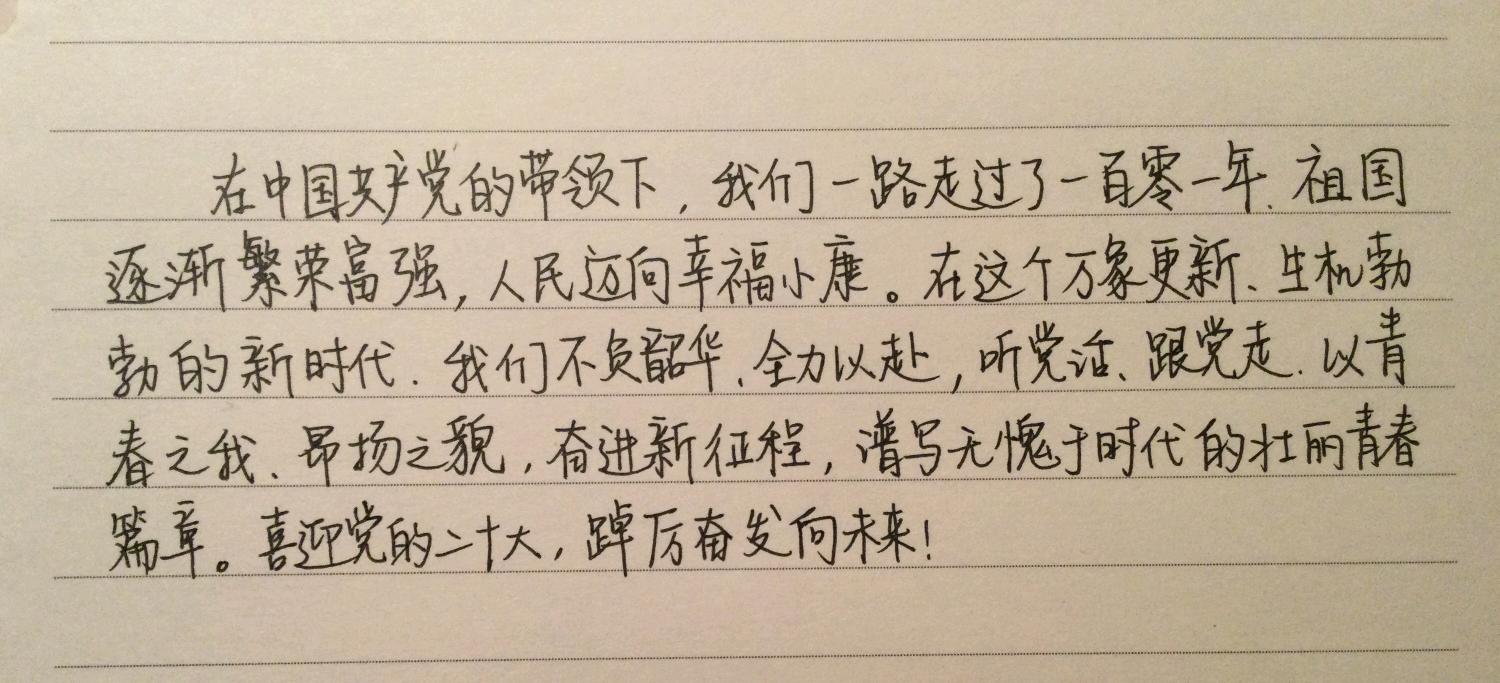 在中国共产党的带领下，我们一路走过了一百零一年、祖国
逐渐繁荣富强，人民迈向幸福小康。在这个万象更新、生机勃
勃的新时代、我们不负韶华、全力以赴，听党话、跟党走、以青
春之我、昂扬之貌，奋进新征程，谱写无愧于时代的壮丽青春
篇章。喜迎党的二十大，踔厉奋发向未来！